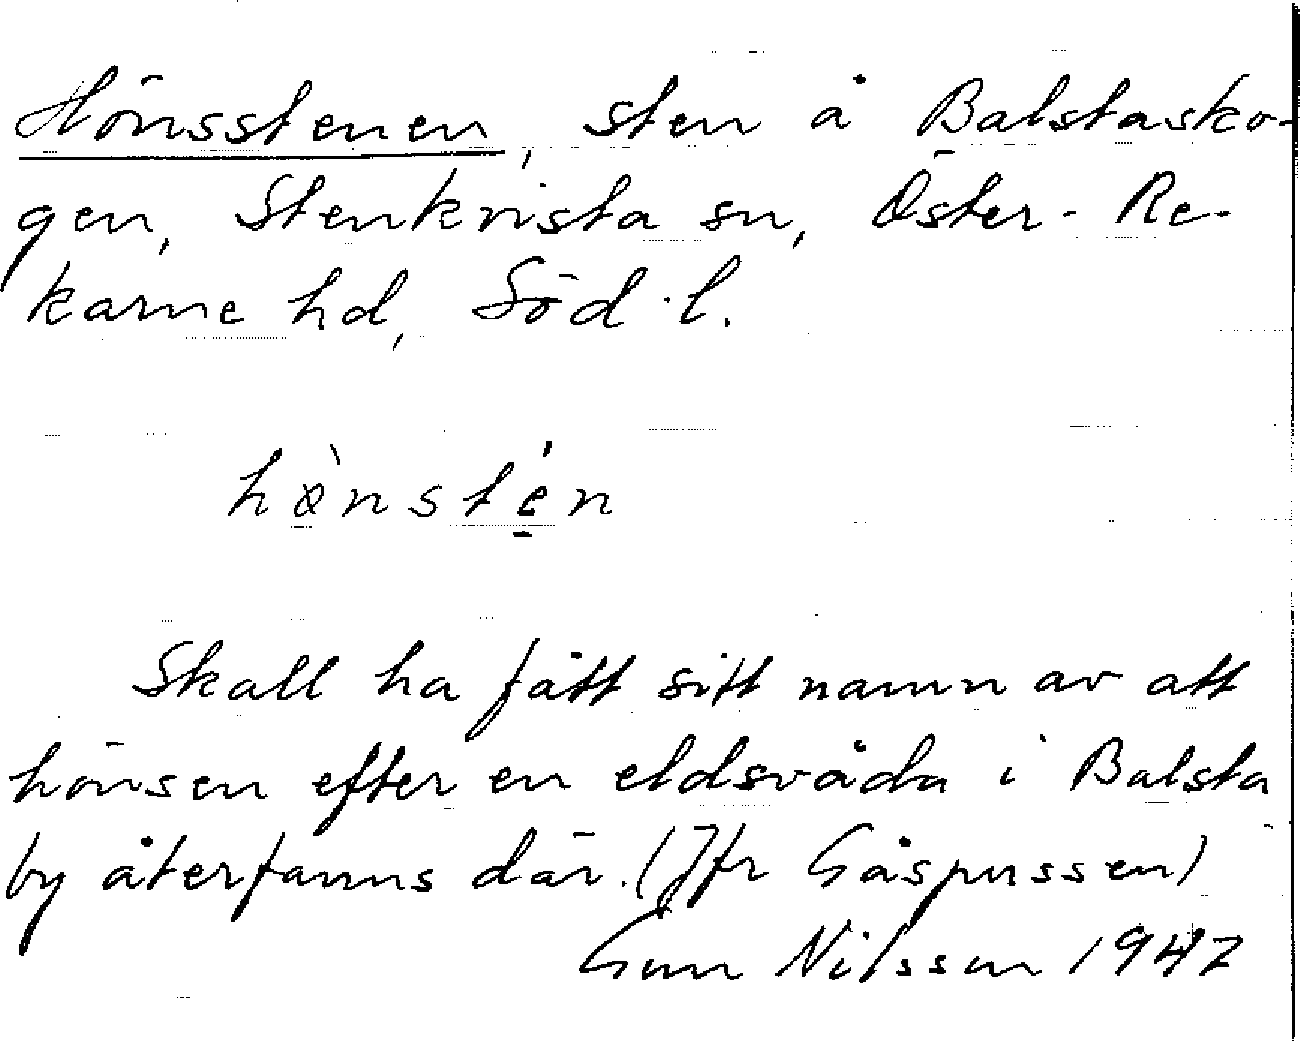 Hönsstenen, sten å Balstasko-
gen, Stenkvista sn, Öster-Re-
karne hd, Söd.l.
hø̀nsté̱n
Skall ha fått sitt namn av att
hönsen efter en eldsvåda i Balsta
by återfanns där. (Jfr Gåspussen)
Gun Nilsson 1947